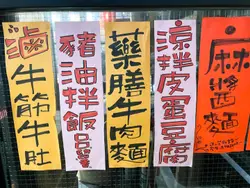 麻醬麵
涼拌皮蛋豆腐
藥膳牛肉麵
豬油拌飯
滷牛筋牛肚